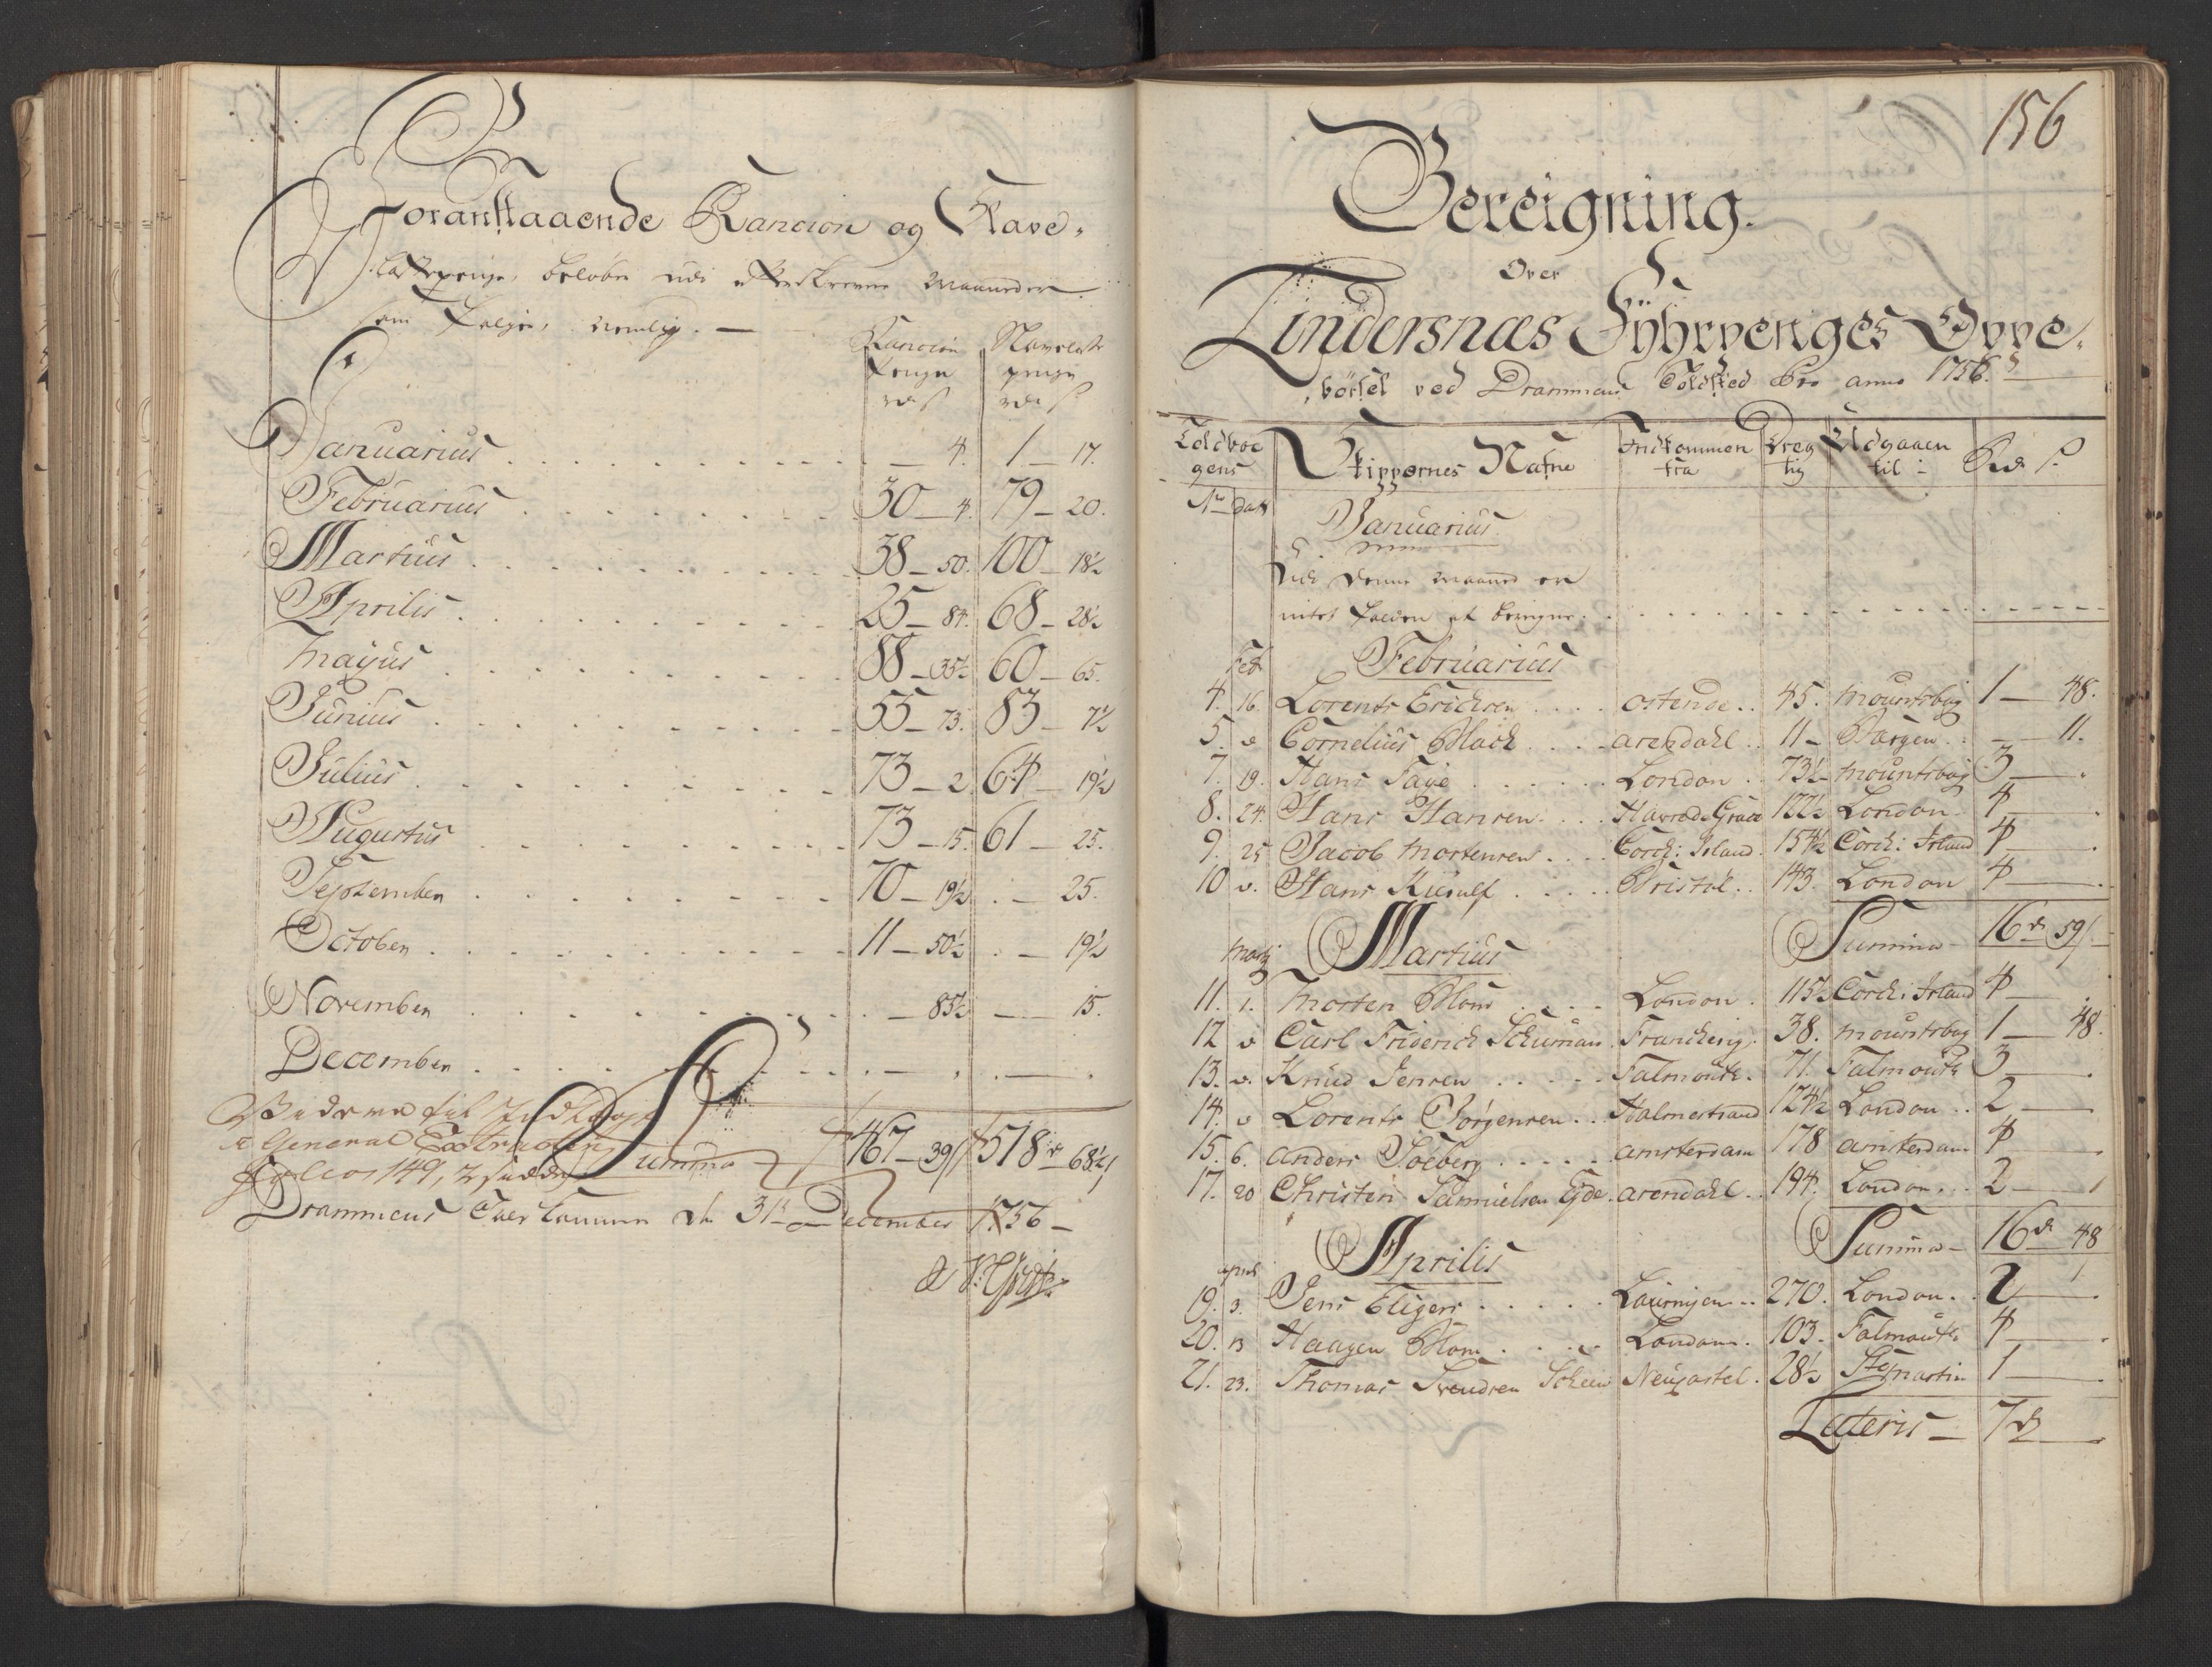 Foranstaaende Rancion og Slave,
Casse penge, beløber udi efterskrevne Maaneder
som følger, nemlig. —
Rancion Penge rdr s | Slavecasse penge rdr s
Januarius . . . — 4. | 1 — 17.
Februarius . . . 30 — 4. | 79 — 20.
Martius . . . 38 — 50. | 100 — 18½
Aprilis . . . 25 — 84. | 68 — 28½
Mayus . . . 88 — 35½ | 60 — 65.
Junius . . . 55 — 73. | 83 — 7½
Julius . . . 73 — 2 | 64 — 19½
Augustus . . . 73 — 15. | 61 — 25.
September . . . 70 — 19½ | . — 25.
October . . . 11 — 50½ | . — 19½
November . . . — 83½ | — 15.
December . . . . — . | . — .
General Extracten
Folio 149, 2 siide
Summa — 467 — 39 s | 518 r 68½ s
Drammens Told Cammer d. 31te December 1756 —
156
Bereigning.
Over
Lindersnæs Fyhrpenges Oppe,
börsel ved Drammens Toldsted Pro anno 1756.
Toldboe gens | Skippernes Nafne | Indkommen fra | Dreg tig | Udgaaen til | Rdr s.
No dato
Januarius
Udi denne Maaned er
intet falden at beregne. . . .
Feb Februarius
4. 16. Lorents Erichsen . . . . ostende . . 45. mountsbay 1 — 48.
5. d Cornelius Black . . . . arendahl . . 11 — Bargen . . — 11.
7. 19. Hans Faye . . . . . London . . 73½ mountsbay 3 — .
8. 24. Hans Hansen . . . . Havre de Grace 122½ London . 4 — .
9. 25 Jacob Mortensen . . . Corck: Irland . 154½ Corck: Irland 4 — .
10 d. Hans Kiculf . . . . . Bristol . . 143. London 4 — .
Summa — 16 rdr 59 s
Martj Martius
11. 1. Morten Blom . . . . London . 115½ Corck: Irland 4 — .
12 d Carl Friderich Schuman . 38. mountsbay 1 — 48.
13. d. Knud Jensen . . . . . Falmouth . 71. Falmouth 3 — .
14. d Lorents Jörgensen . . . Holmestrand 124½ London . . 2 —
15. 6. anders Soeberg . . . . . amsterdam 178 amsterdam 4 — .
17. 20 Christen Samuelsen Eyde . arendahl . . 194. London . . . 2 —
Summa — 16 rdr 48
april Aprilis
19. 3. Jens Eligers . . . . . 270. London . . 2 — .
20. 13 Haagen Blom . . . . London . 103. Falmouth 4 — .
21. 23. Thomas Svendsen Scheen Neucastel . 28½ St martin 1 — .
Lateris — 7 rdr —